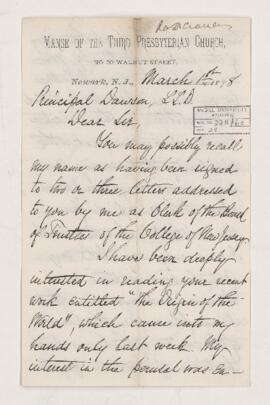 MANSE OF THE THIRD PRESBYTERIAN CHURCH,
NO 50 WALNUT STREET,
Newark, N. J., March 1st 1878
Principal Dawson, LL.D.
Dear Sir,
You may possibly recall
my name as having been signed
to two or three letters addressed
to you by me as Clerk of the Board
of Trustees of the College of New Jersey.
I have been deeply
interested in reading your recent
work entitled "the Origin of the
World", which came into my
hands only last week. My
interest in the perusal was en-
McGILL UNIVERSITY
ARCHIVES